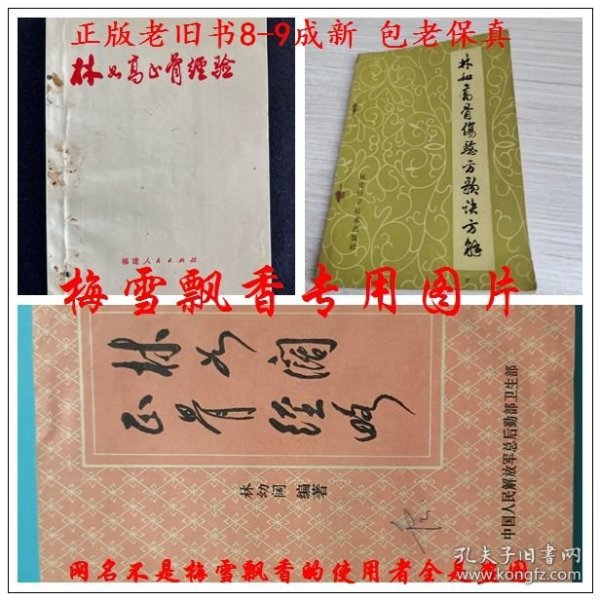 正版老旧书8-9成新 包老保真
林如高正骨经验
福建人民出版社
林如高骨伤验方歌诀方解
福建科学技术出版社
梅雪飘香专用图片
林如阔
正骨经
林幼闲 编著
中国人民解放军总后勤部卫生部
孔夫子旧书网
www.kongfz.com
网名不是梅雪飘香的使用者全是盗图